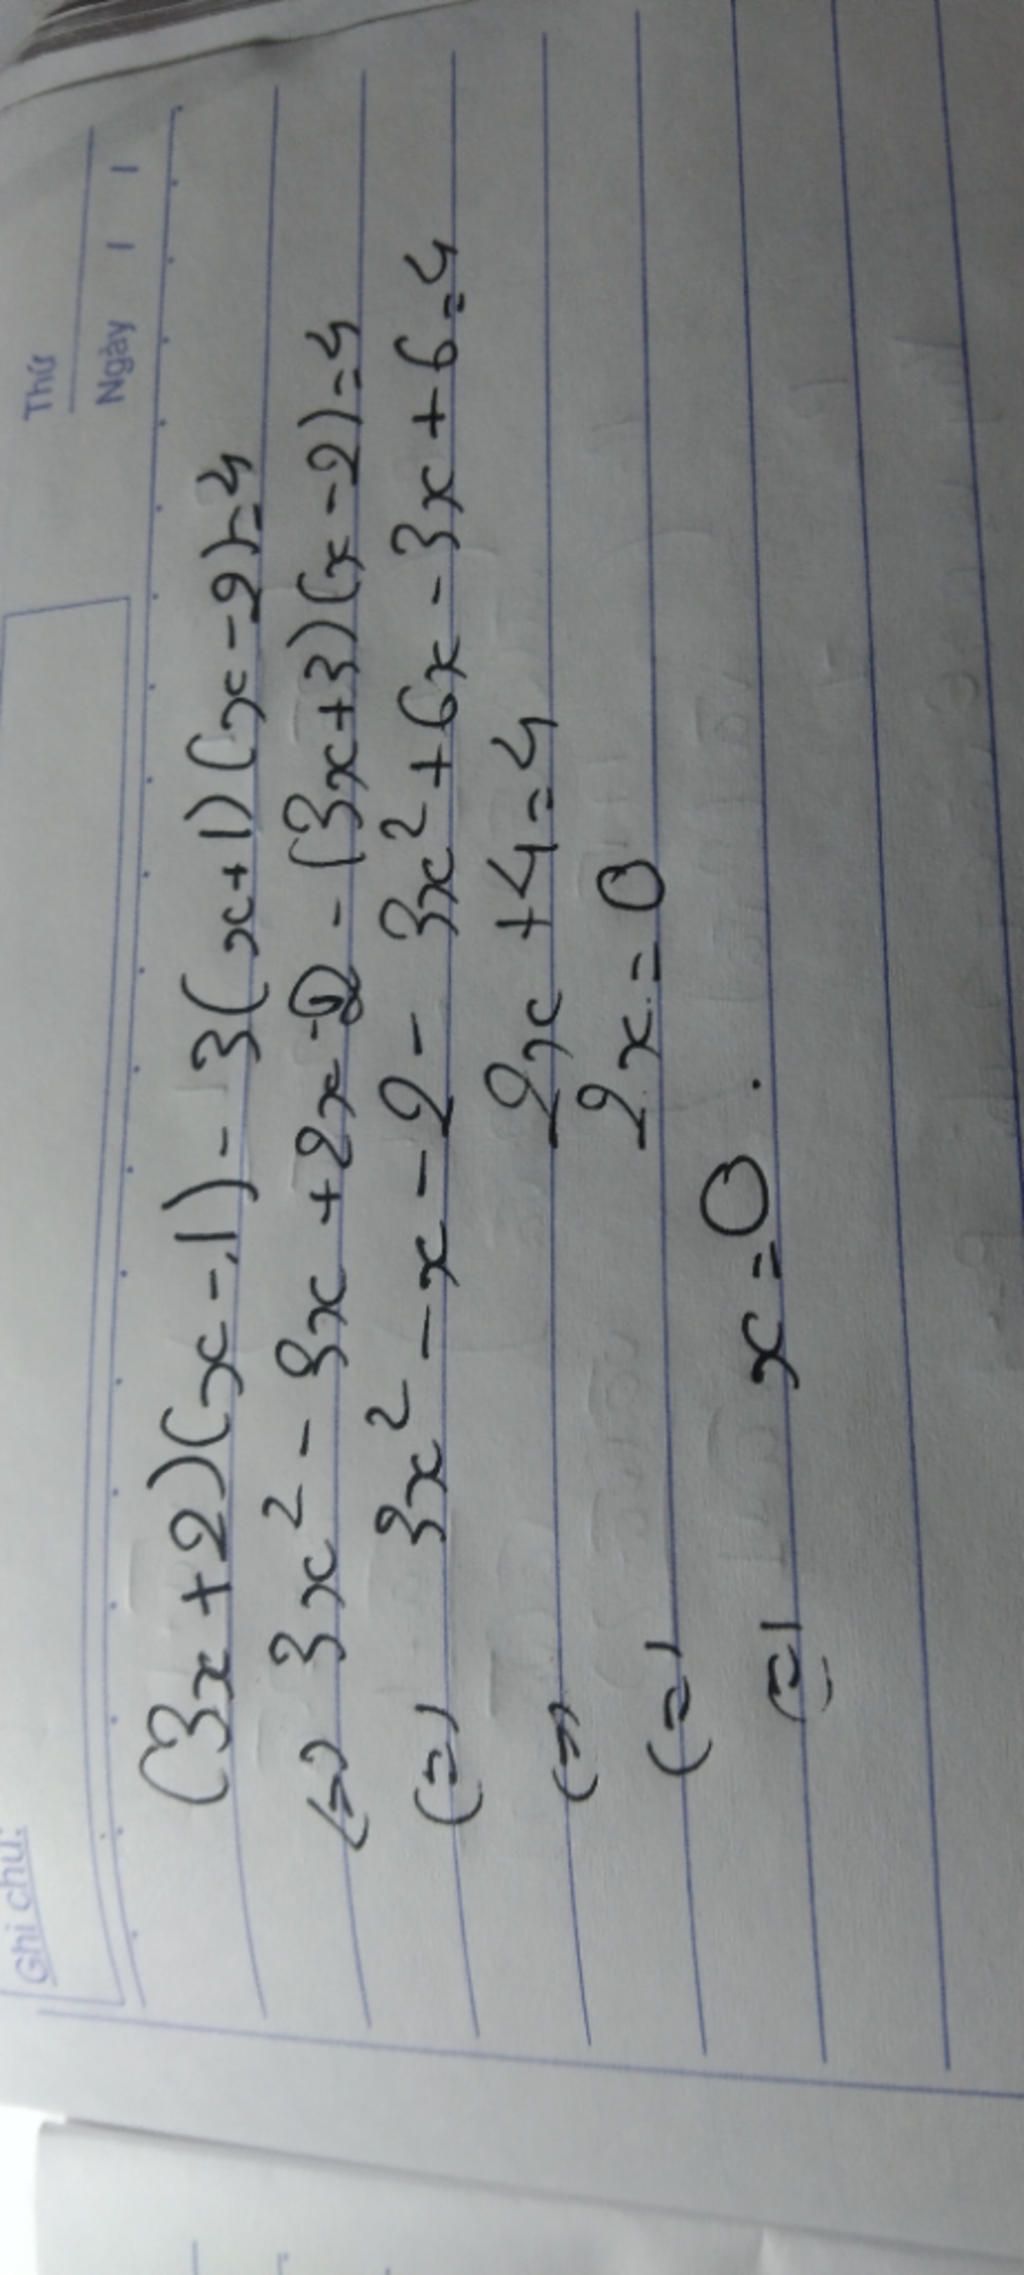 Ghi chú:
Thứ
Ngày / /
(3x+2)(x-1)-3(x+1)(x-2)=4
(=) 3x² - 3x + 2x - 2 - (3x+3)(x-2)=4
(=) 3x² - x - 2 - 3x² + 6x - 3x + 6 = 4
(=) 2x + 4 = 4
(=) 2x = 0
(=) x = 0.